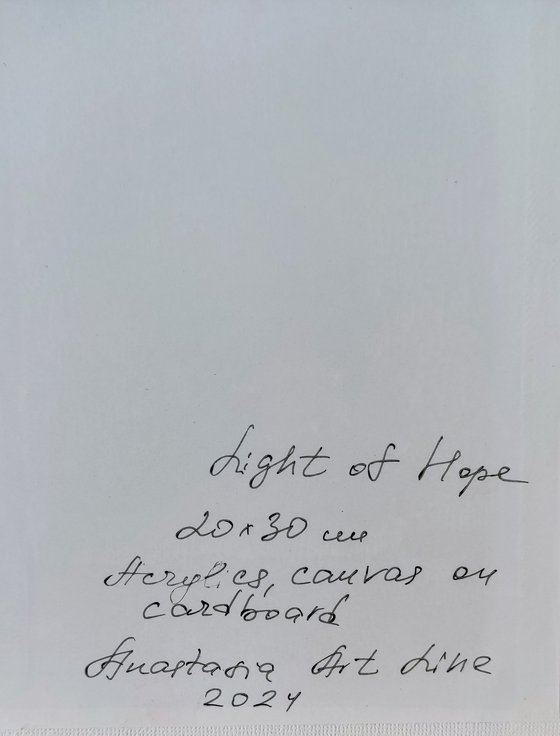 Light of Hope
20x30 cm
Acrylics, canvas on
cardboard
Anastasia Art Line
2024